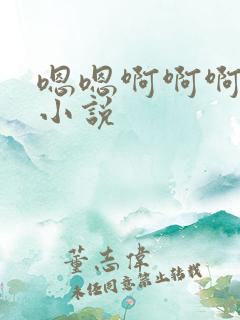 嗯嗯啊啊啊
小説
董志偉
未経同意禁止轉載